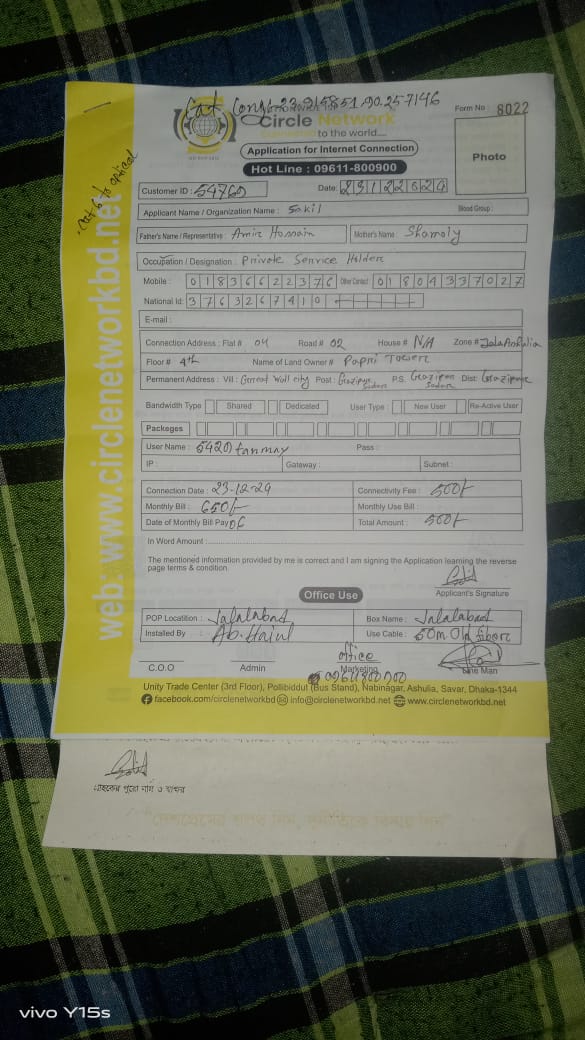 Circle Network
to the world....
Form No : 8022
Application for Internet Connection
Hot Line : 09611-800900
Photo
Customer ID : 54760
Date:
Applicant Name / Organization Name : Sakil
Blood Group :
Father's Name / Representative : Amir Hossain
Mother's Name : Shamoly
Occupation / Designation : Private Service Holder
Mobile : 01836622376 Other Contact : 01804337027
National Id: 3763267410
E-mail :
Connection Address : Flat # 04 Road # 02 House # N/A Zone #
Floor # 4th Name of Land Owner # Papri Tower
Permanent Address : Vill : Post : Gazipur Sadar P.S. Gazipur Sadar Dist: Gazipur
Bandwidth Type Shared Dedicated User Type New User Re-Active User
Packeges
User Name : 5420tanmay Pass :
IP : Gateway : Subnet :
Connection Date : 23-12-24 Connectivity Fee : 500/-
Monthly Bill : 650/- Monthly Use Bill :
Date of Monthly Bill Pay 06 Total Amount : 500/-
In Word Amount :
The mentioned information provided by me is correct and I am signing the Application learning the reverse
page terms & condition.
Applicant's Signature
Office Use
POP Locatition : Jalalabad Box Name : Jalalabad
Installed By Use Cable : 50m Old fiber
office
C.O.O Admin Marketing Line Man
Unity Trade Center (3rd Floor), Pollibiddut (Bus Stand), Nabinagar, Ashulia, Savar, Dhaka-1344
facebook.com/circlenetworkbd info@circlenetworkbd.net www.circlenetworkbd.net
web: www.circlenetworkbd.net
গ্রাহকের পুরো নাম ও স্বাক্ষর
vivo Y15s